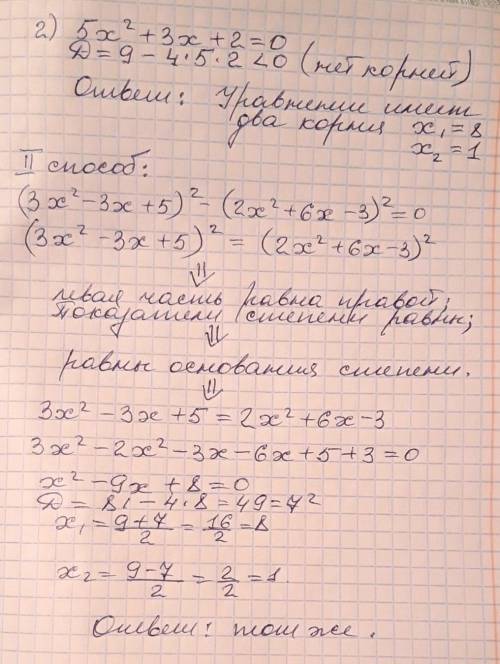 2) 5x² + 3x + 2 = 0
D = 9 - 4·5·2 < 0 (нет корней)
Ответ: Уравнение имеет
два корня x₁ = 8
x₂ = 1
II способ:
(3x² - 3x + 5)² - (2x² + 6x - 3)² = 0
(3x² - 3x + 5)² = (2x² + 6x - 3)²
⇓
левая часть равна правой;
показатели степени равны;
⇓
равны основания степени.
⇓
3x² - 3x + 5 = 2x² + 6x - 3
3x² - 2x² - 3x - 6x + 5 + 3 = 0
x² - 9x + 8 = 0
D = 81 - 4·8 = 49 = 7²
x₁ = (9+7)/2 = 16/2 = 8
x₂ = (9-7)/2 = 2/2 = 1
Ответ: тот же.